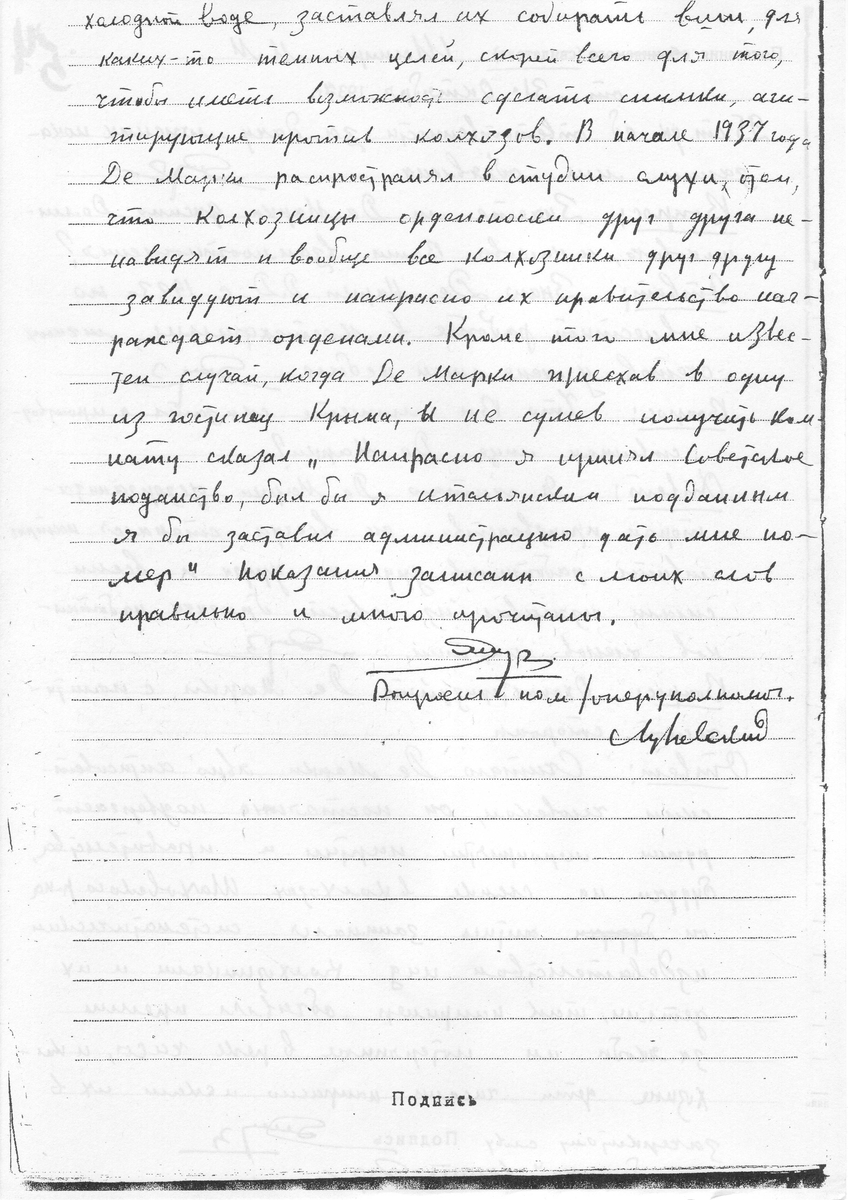 холодной воде, заставлял их собирать вши, для
каких-то темных целей, скорей всего для того,
чтобы иметь возможность сделать снимки, аги-
тирующие против колхозов. В начале 1937 года
Де Марки распространял в студии слухи, о том,
что колхозницы орденоноски друг друга не-
навидят и вообще все колхозники друг другу
завидуют и напрасно их правительство наг-
раждает орденами. Кроме того мне извес-
тен случай, когда Де Марки приехав в одну
из гостиниц Крыма, и не сумев получить ком-
нату сказал „Напрасно я принял Советское
поданство, был бы я итальянским подданным
я бы заставил администрацию дать мне но-
мер" Показания записаны с моих слов
правильно и мною прочтены.
Допросил пом/оперуполномоч.
Подпись